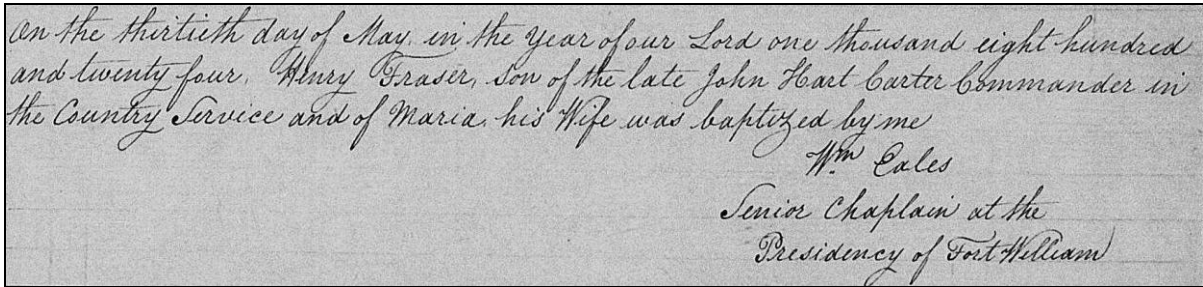 On the thirtieth day of May, in the Year of our Lord one thousand eight hundred
and twenty four, Henry Fraser, Son of the late John Hart Carter Commander in
the Country Service and of Maria his Wife was baptized by me
Wm Eales
Senior Chaplain at the
Presidency of Fort William